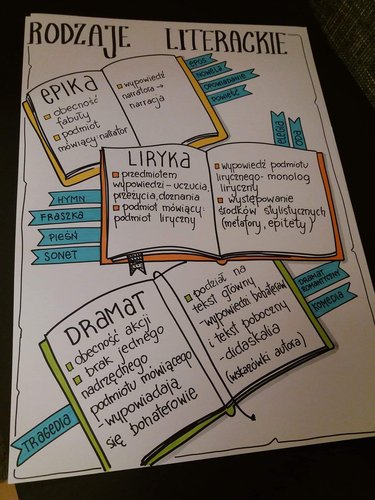 RODZAJE LITERACKIE
EPIKA
obecność
fabuły
podmiot
mówiący: narrator
wypowiedź
narratora →
narracja
EPOS
NOWELA
OPOWIADANIE
POWIEŚĆ
LIRYKA
przedmiotem
wypowiedzi - uczucia,
przeżycia, doznania
podmiot mówiący:
podmiot liryczny
wypowiedź podmiotu
lirycznego - monolog
liryczny
występowanie
środków stylistycznych
(metafory, epitety)
ELEGIA
ODA
HYMN
FRASZKA
PIEŚŃ
SONET
DRAMAT
obecność akcji
brak jednego
nadrzędnego
podmiotu mówiącego
- wypowiadają
się bohaterowie
podział na
tekst główny
- wypowiedzi bohaterów
i tekst poboczny
- didaskalia
(wskazówki autora)
DRAMAT
ROMANTYCZNY
KOMEDIA
TRAGEDIA